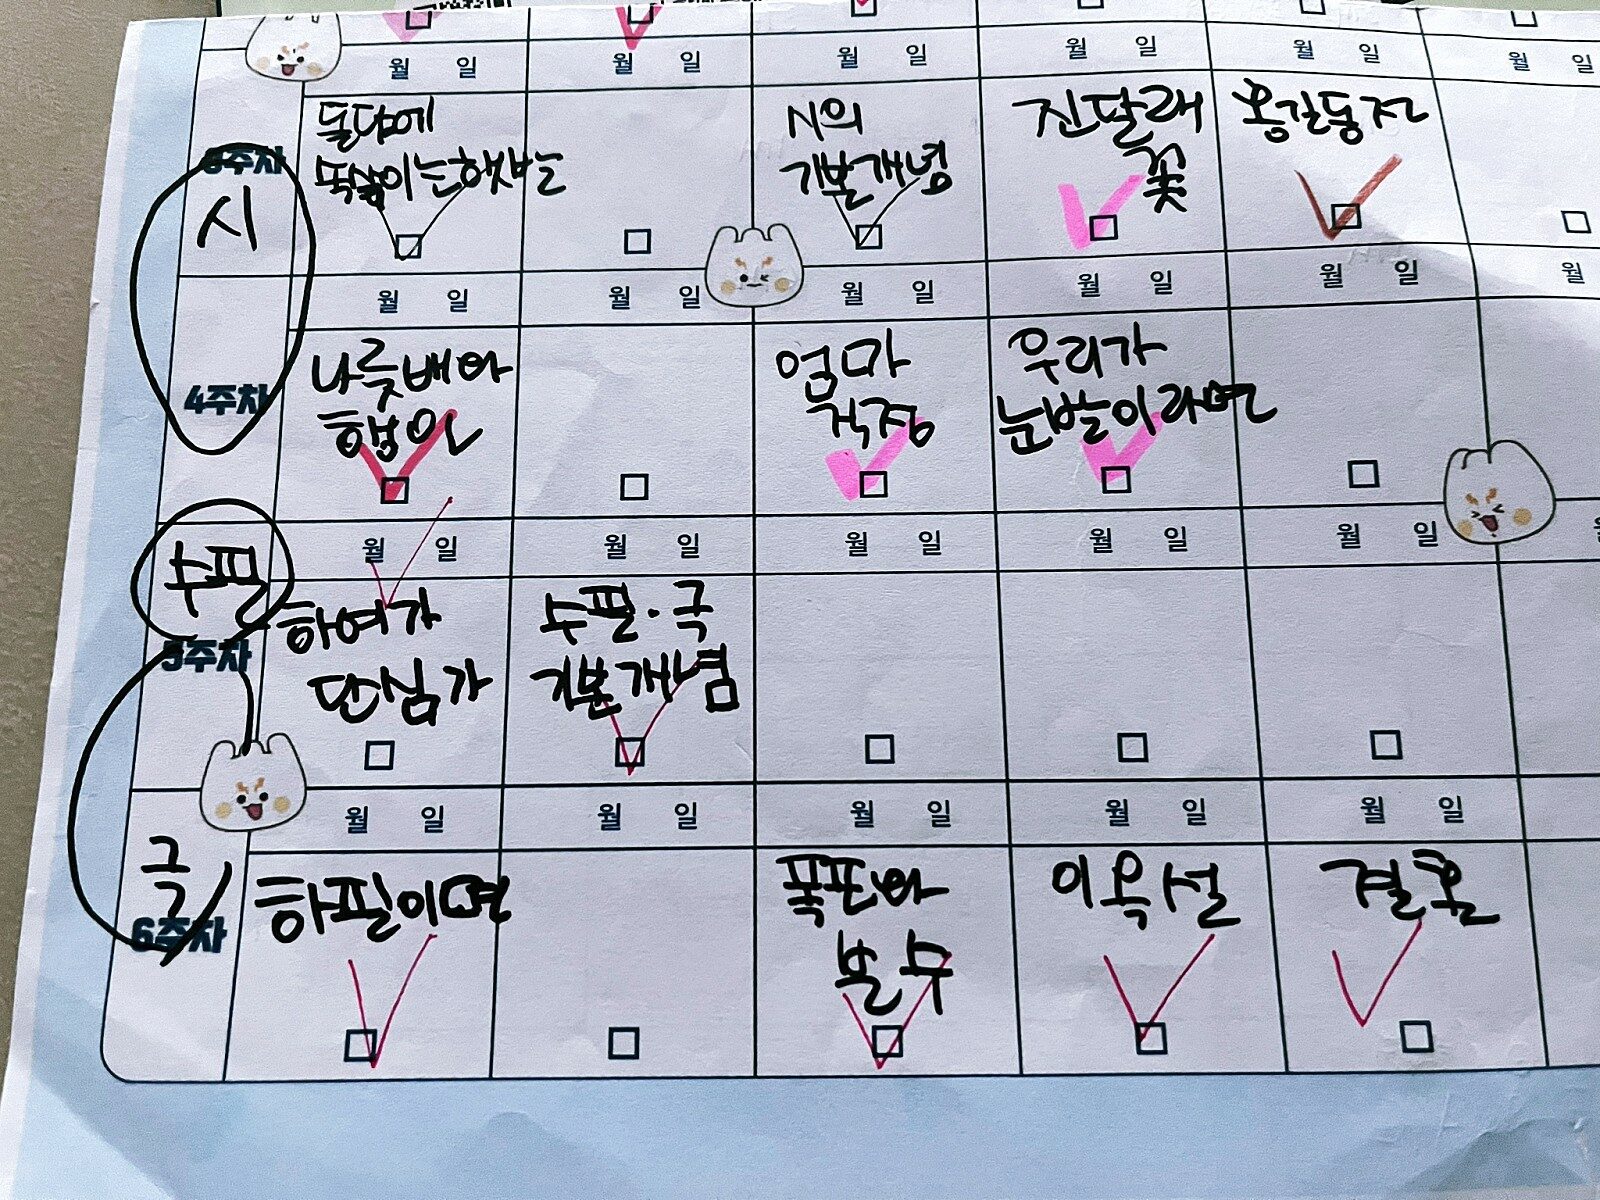 월 일 월 일 월 일 월 일 월 일 월 일
3주차
시
돌담에
속삭이는햇발
시의
기본개념
진달래
꽃
홍길동전
월 일 월 일 월 일 월 일 월 일 월
4주차
나룻배와
행인
엄마
걱정
우리가
눈발이라면
월 일 월 일 월 일 월 일 월 일
수필
5주차
하여가
단심가
수필·극
기본개념
월 일 월 일 월 일 월 일 월 일
극
6주차
하필이면
폭포와
분수
이옥설
결혼